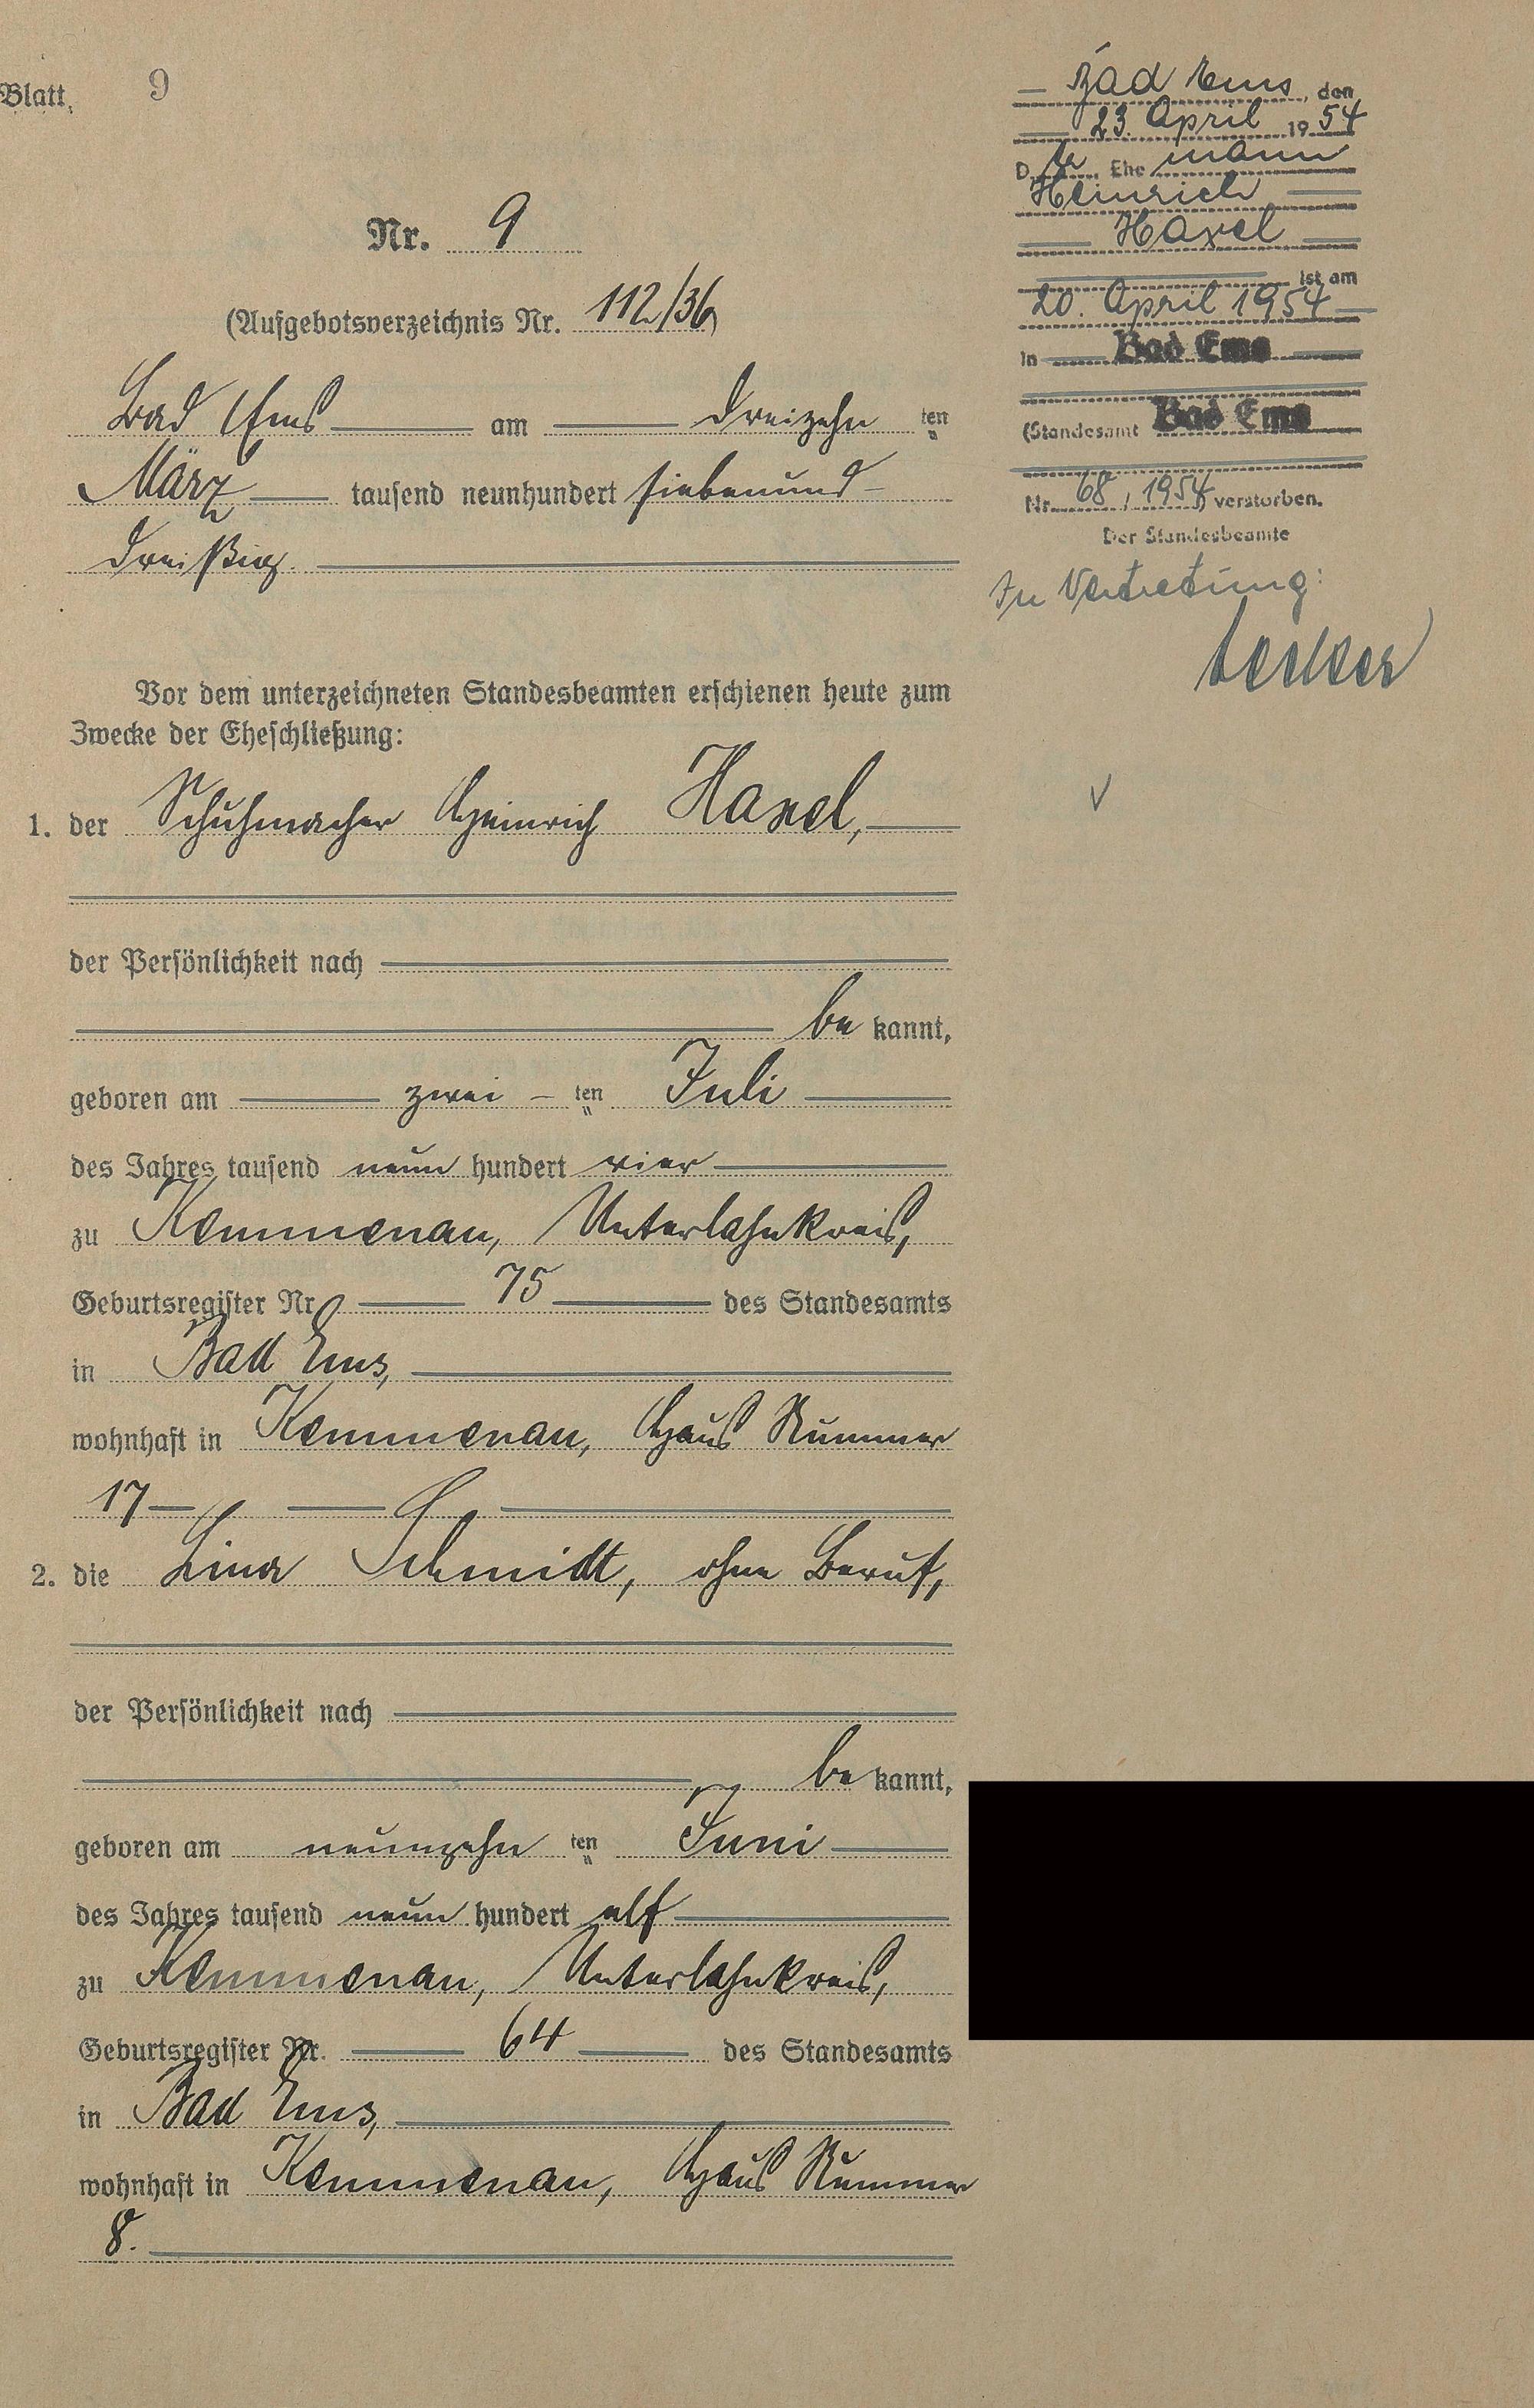 Blatt. 9
Nr. 9
(Aufgebotsverzeichnis Nr. 112/36)
Bad Ems am dreizehn ten
März tausend neunhundert siebenund-
dreißig.
Vor dem unterzeichneten Standesbeamten erschienen heute zum
Zwecke der Eheschließung:
1. der Schuhmacher Heinrich Haxel,
der Persönlichkeit nach
be kannt,
geboren am zwei - ten Juli
des Jahres tausend neun hundert vier
zu Kemmenau, Unterlahnkreis,
Geburtsregister Nr. 75 des Standesamts
in Bad Ems,
wohnhaft in Kemmenau, Haus Nummer
17
2. die Lina Schmidt, ohne Beruf,
der Persönlichkeit nach
be kannt,
geboren am neunzehn ten Juni
des Jahres tausend neun hundert elf
zu Kemmenau, Unterlahnkreis,
Geburtsregister Nr. 64 des Standesamts
in Bad Ems,
wohnhaft in Kemmenau, Haus Nummer
8.
Bad Ems, den
23. April 1954
D er Ehe mann
Heinrich
Haxel
ist am
20. April 1954
in Bad Ems
(Standesamt Bad Ems
Nr. 68, 1954) verstorben.
Der Standesbeamte
In Vertretung: